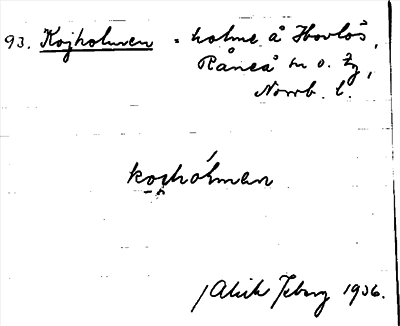 93. Kojholmen = holme å Hovlös,
Råneå sn o. tg,
Norrb. l.
kojhólman
Alrik 1936.